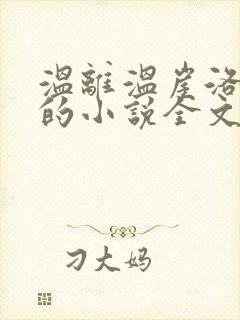 温離温崖洛
的小說全文
刁大妈